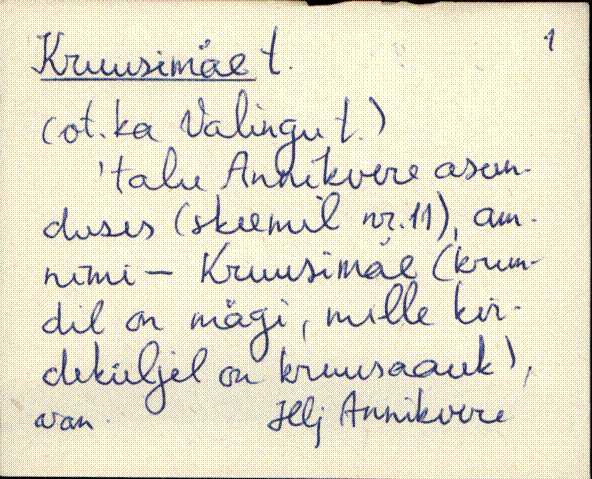 1
Kruusimäe t.
(ot. ka Valingu t.)
'talu Annikvere asun-
duses (skeemil nr. 11), am.
nimi – Kruusimäe (krun-
dil on mägi, mille kir-
deküljel on kruusaauk),
Hlj Annikvere